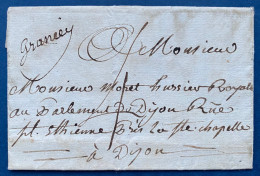 Grancey
A Monsieur
Monsieur Moret hussier Royale
au Parlement de Dijon Rüe
st. Etienne Près la ste chapelle
à Dijon